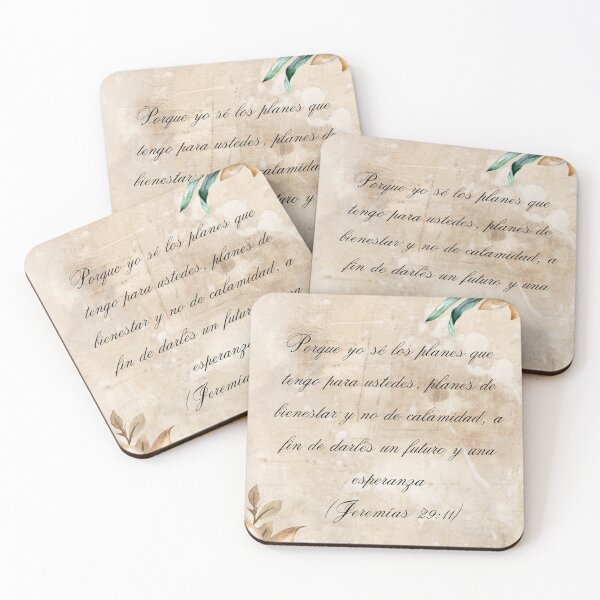 Porque yo sé los planes que
tengo para ustedes, planes de
bienestar y no de calamida
futuro y
Porque yo sé los planes que
tengo para ustedes, planes de
bienestar y no de calamidad, a
fin de darles un futuro y una
Porque yo sé los planes que
tengo para ustedes, planes de
bienestar y no de calamidad, a
fin de darles un futuro
esperanza
(Jeremías
Porque yo sé los planes que
tengo para ustedes, planes de
bienestar y no de calamidad, a
fin de darles un futuro y una
esperanza
(Jeremías 29:11)